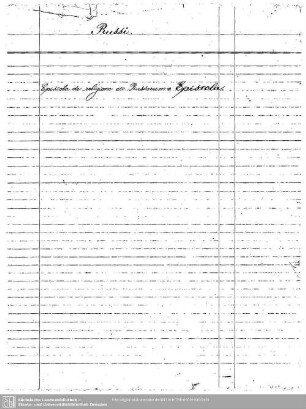 Russi.
Epistola de religione et Russorum Epistola.
Sächsische Landesbibliothek -
Staats- und Universitätsbibliothek Dresden